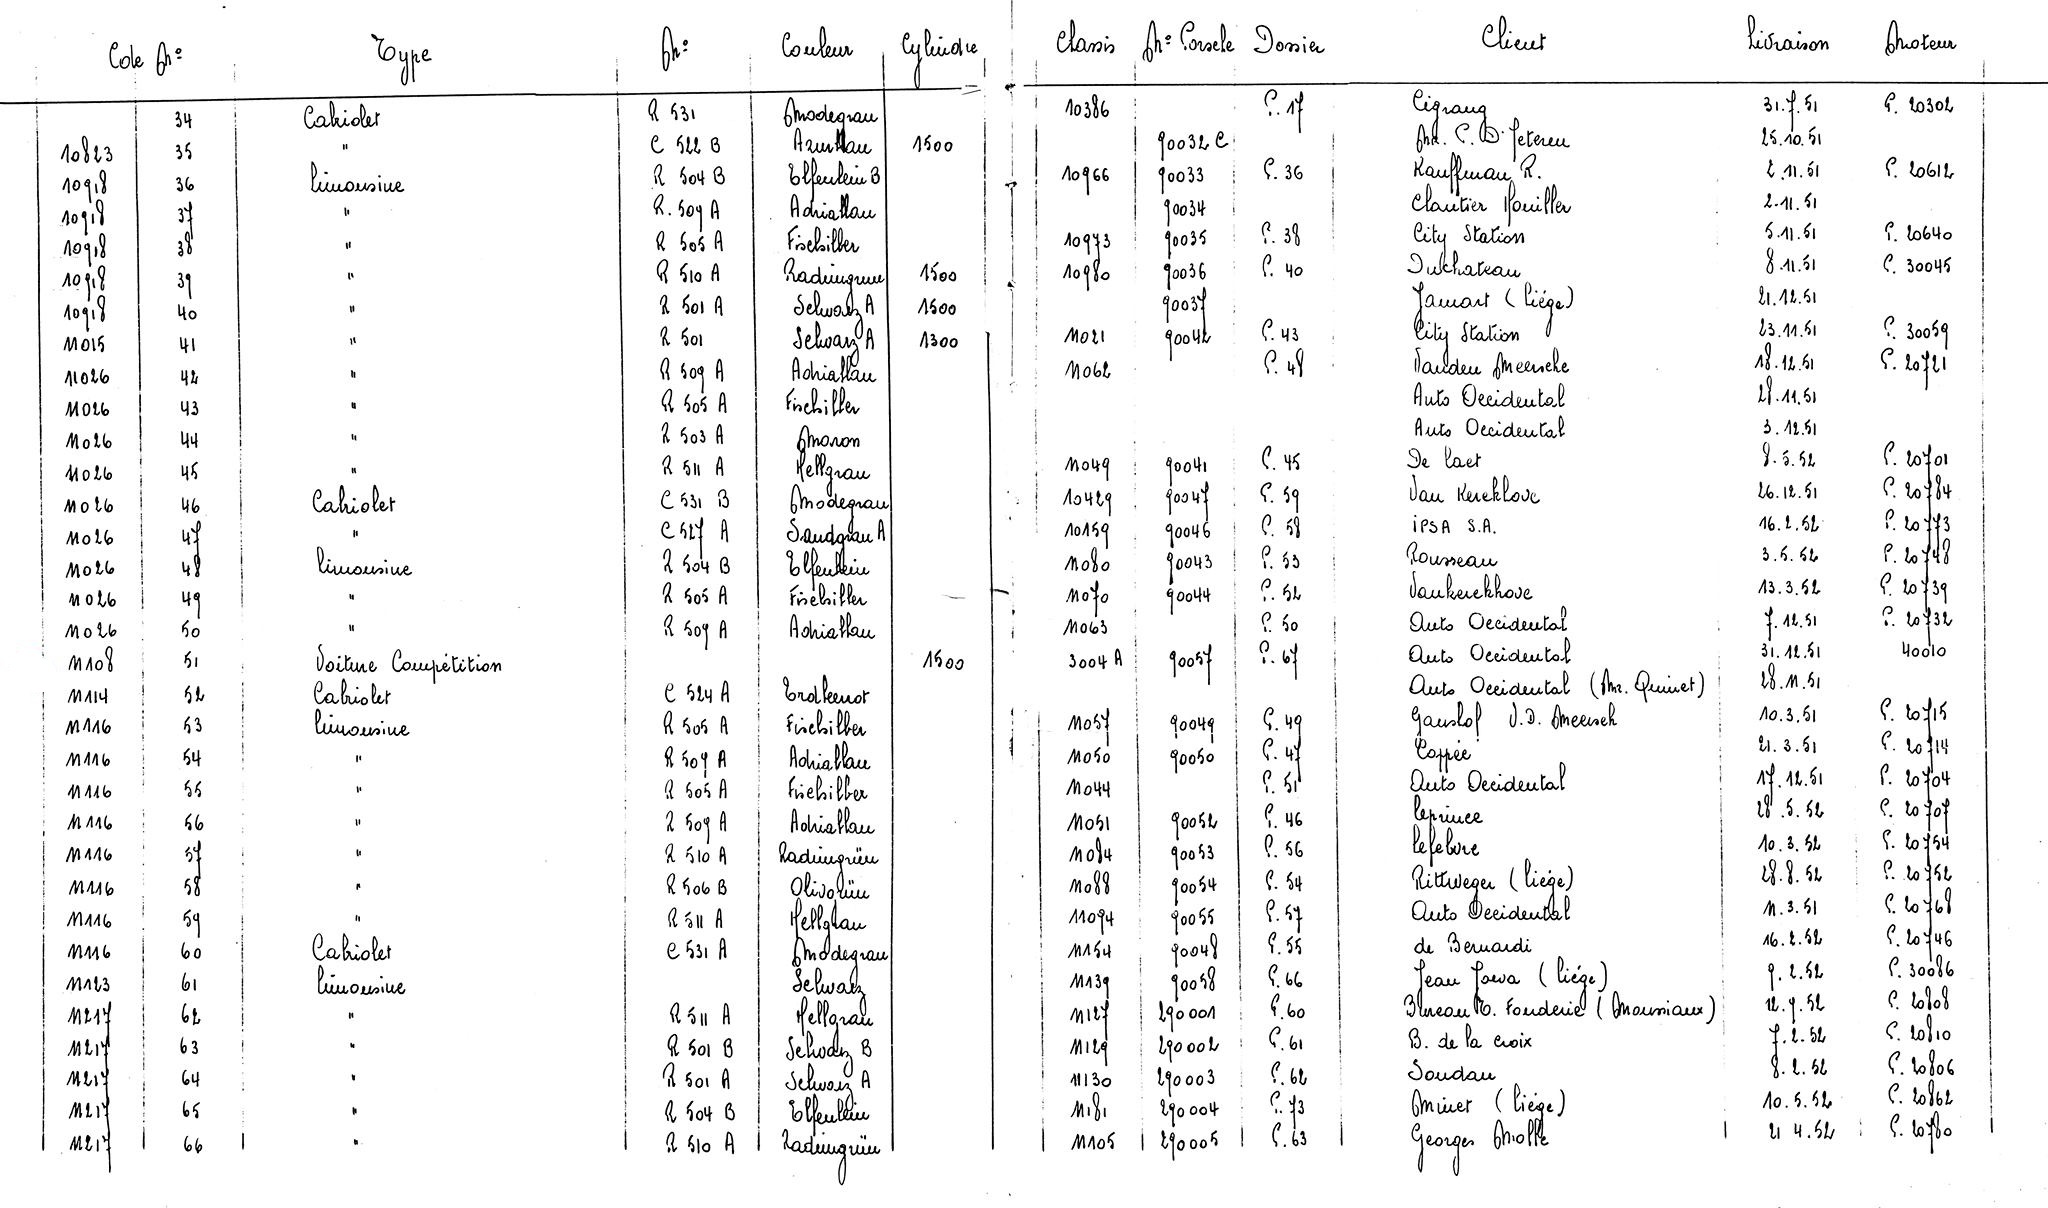 Code No Type No Couleur Cylindre Classis No Porsche Dossier Client Livraison Moteur
34 Cabriolet R 531 Modegrau 10386 P. 17 Cigrang 31.7.51 P. 20302
10823 35 " C 522 B Azurblau 1500 90032 C Mr. P. D'Ieteren 25.10.51
10918 36 Limousine R 504 B Elfenbein B 10966 90033 P. 36 Kauffman R. 2.11.51 P. 20612
10918 37 " R. 509 A Adriablau 90034 2.11.51
10918 38 " R 505 A Fischsilber 10973 90035 P. 38 City Station 5.11.51 P. 20640
10918 39 " R 510 A Radiumgrün 1500 10980 90036 P. 40 Duchateau 8.11.51 P. 30045
10918 40 " R 501 A Schwarz A 1500 90037 Jamart (Liége) 21.12.51
11015 41 " R 501 Schwarz A 1300 11021 90042 P. 43 City Station 23.11.51 P. 30059
11026 42 " R 509 A Adriablau 11062 P. 48 Vanden Meersche 18.12.51 P. 20721
11026 43 " R 505 A Fischsilber Auto Occidental 28.11.51
11026 44 " R 503 A Maron Auto Occidental 3.12.51
11026 45 " R 511 A Hellgrau 11049 90041 P. 45 De Laet 8.5.52 P. 20701
11026 46 Cabriolet C 531 B Modegrau 10429 90047 P. 59 Van Kerckhove 26.12.51 P. 20784
11026 47 " C 527 A Sandgrau A 10159 90046 P. 58 IPSA S.A. 16.2.52 P. 20773
11026 48 Limousine R 504 B Elfenbein 11080 90043 P. 53 Rousseau 3.5.52 P. 20748
11026 49 " R 505 A Fischsilber 11070 90044 P. 52 Vankerckhove 13.3.52 P. 20739
11026 50 " R 509 A Adriablau 11063 P. 50 Auto Occidental 7.12.51 P. 20732
11108 51 Voiture Compétition 1500 3004 A 90057 P. 67 Auto Occidental 31.12.51 40010
11114 52 Cabriolet C 524 A Auto Occidental (Mr. Quinet) 28.11.51
11116 53 Limousine R 505 A Fischsilber 11057 90049 P. 49 Ganshof V.D. Meersch 10.3.51 P. 20715
11116 54 " R 509 A Adriablau 11050 90050 P. 47 Coppée 21.3.51 P. 20714
11116 55 " R 505 A Fischsilber 11044 P. 51 Auto Occidental 17.12.51 P. 20704
11116 56 " R 509 A Adriablau 11051 90052 P. 46 Leprince 28.5.52 P. 20707
11116 57 " R 510 A Radiumgrün 11084 90053 P. 56 Lefebvre 10.3.52 P. 20754
11116 58 " R 506 B Olivgrün 11088 90054 P. 54 Rittweger (Liége) 28.8.52 P. 20752
11116 59 " R 511 A Hellgrau 11094 90055 P. 57 Auto Occidental 11.3.51 P. 20768
11116 60 Cabriolet C 531 A Modegrau 11154 90048 P. 55 de Bernardi 16.2.52 P. 20746
11123 61 Limousine Schwarz 11139 90058 P. 66 Jean (Liége) 9.2.52 P. 30086
11217 62 " R 511 A Hellgrau 11127 290001 P. 60 Bureau Fonderie (Mousiaux) 12.9.52 P. 20808
11217 63 " R 501 B Schwarz B 11129 290002 P. 61 B. de la Croix 7.2.52 P. 20810
11217 64 " R 501 A Schwarz A 11130 290003 P. 62 Soudan 8.2.52 P. 20806
11217 65 " R 504 B Elfenbein 11181 290004 P. 73 Minet (Liége) 10.5.52 P. 20862
11217 66 " R 510 A Radiumgrün 11105 290005 P. 63 Georges 21 4.52 P. 20780